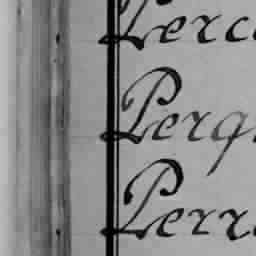 Perc
Perq
Perr